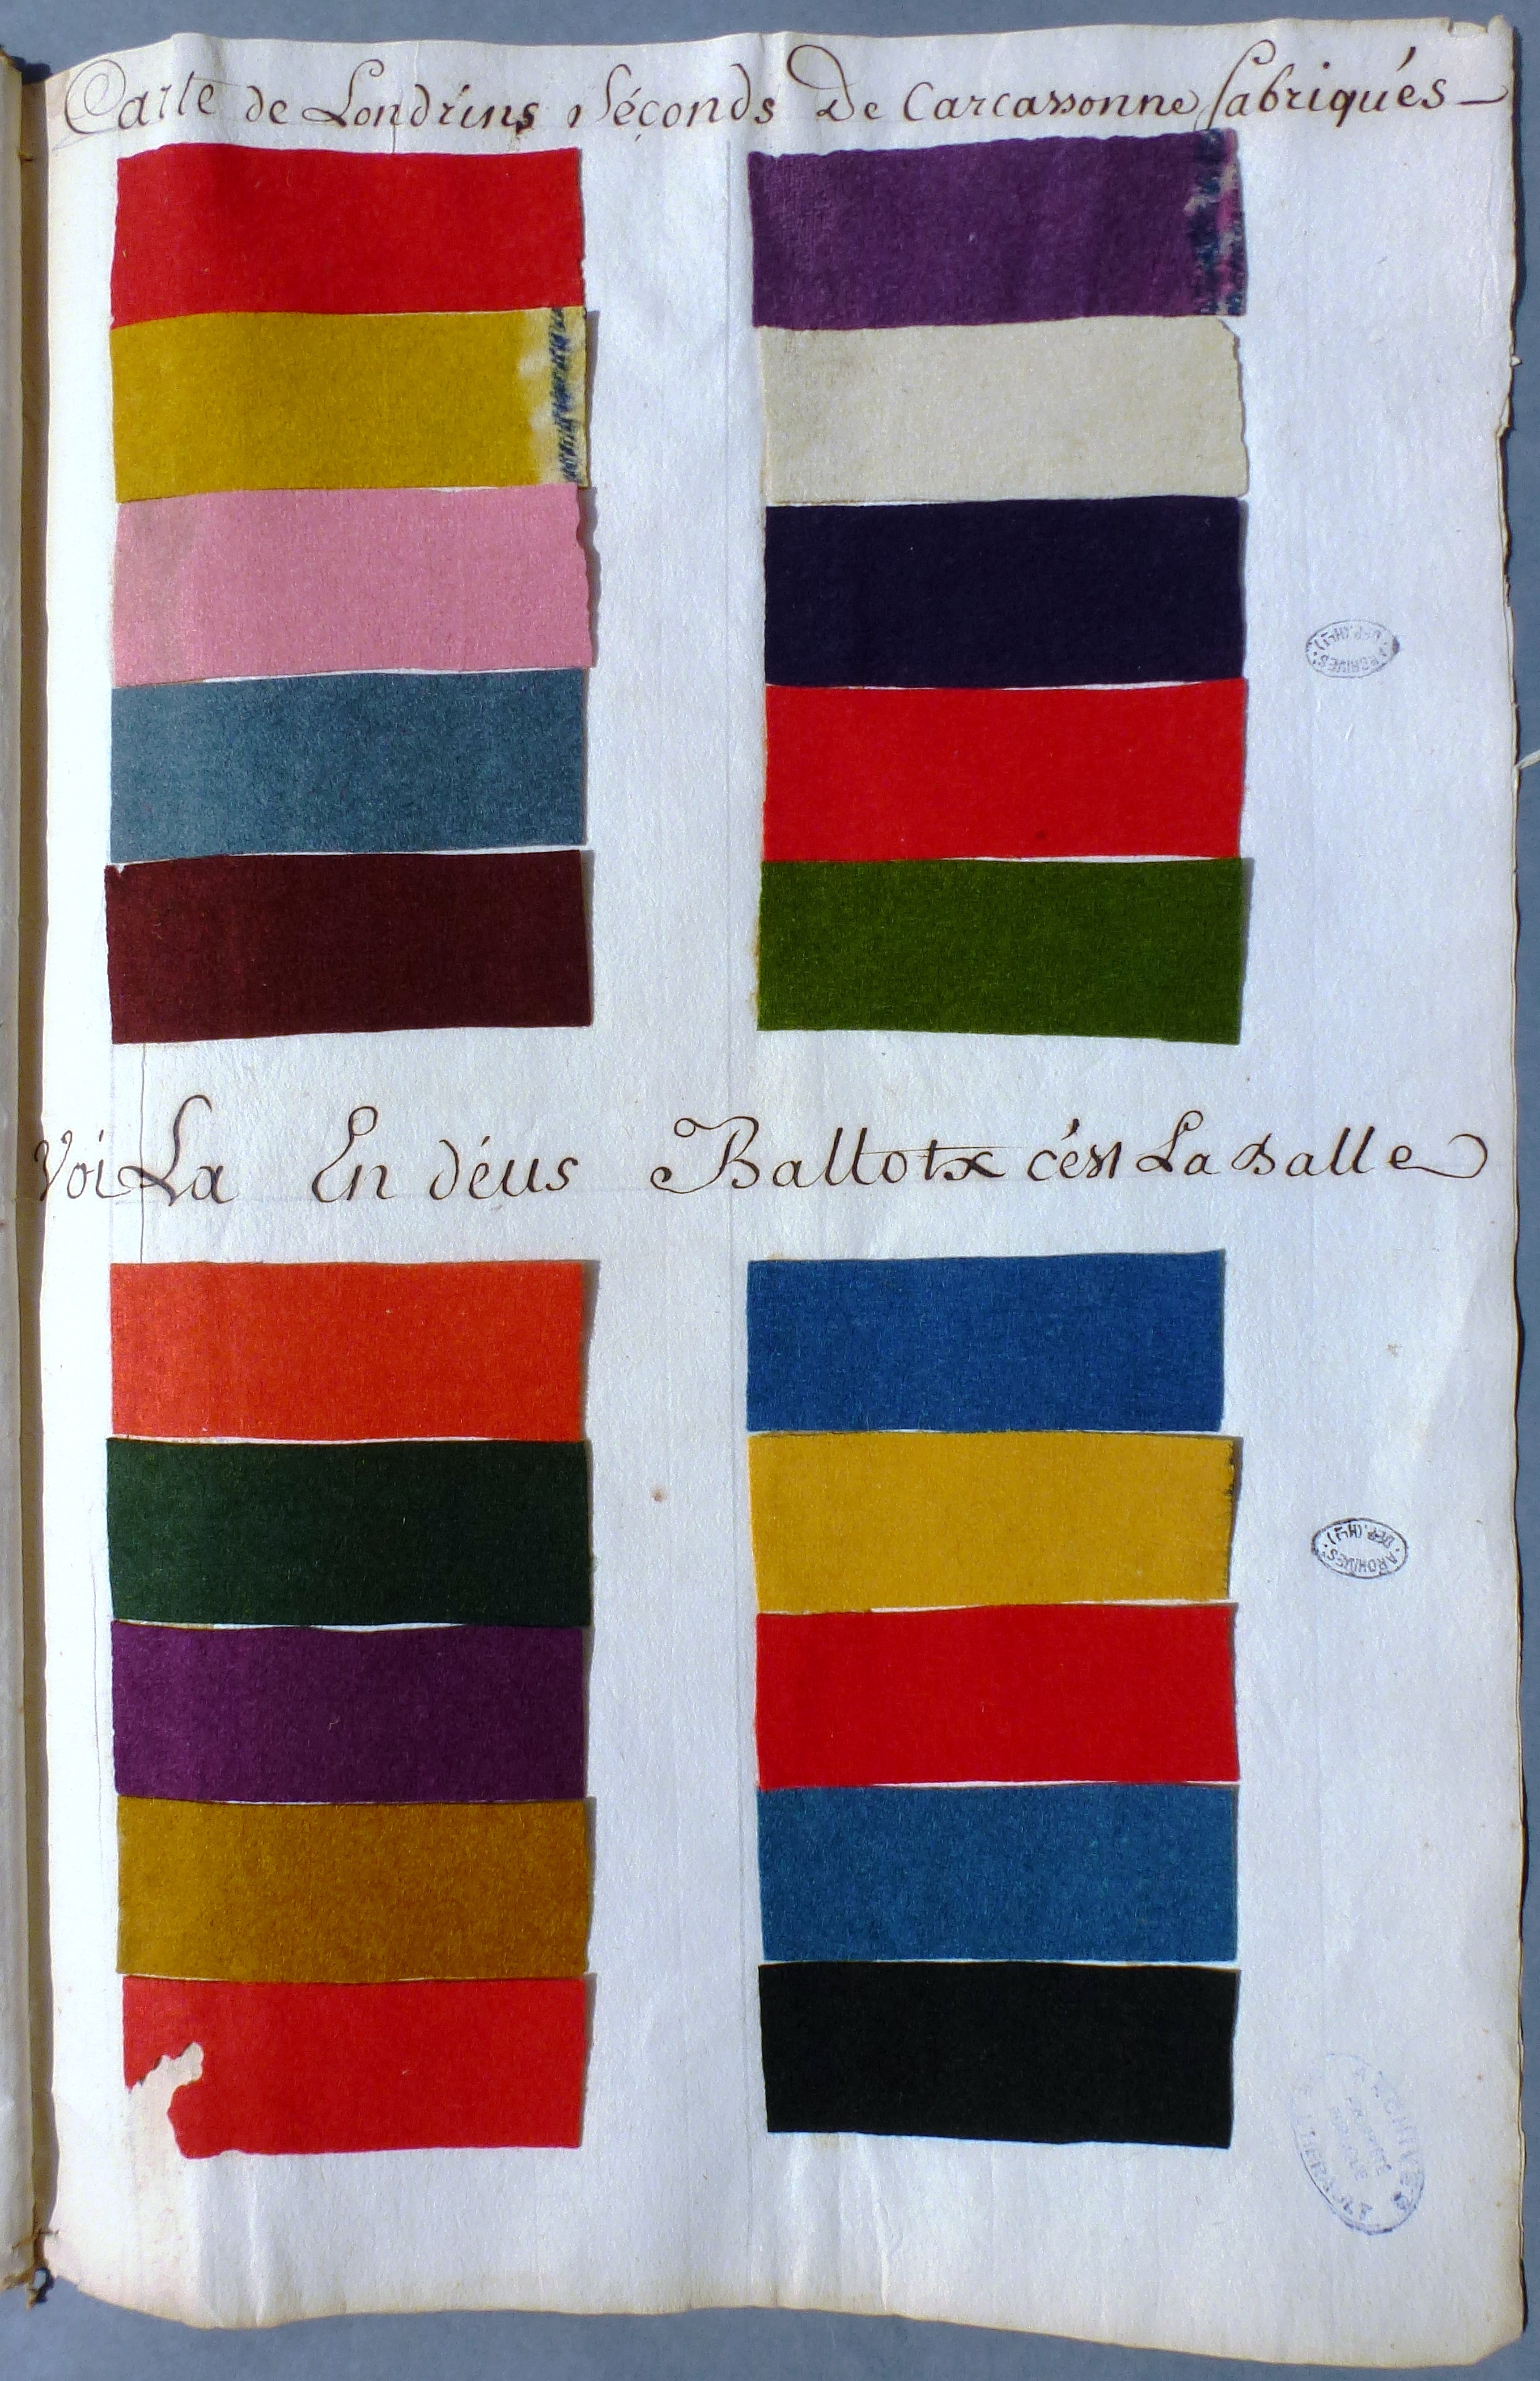 Carte de Londrins Séconds De Carcassonne fabriqués
Voi La En déus Ballotx cést La Balle
ARCHIVES
DEP. (HLT)
ARCHIVES
DEP. (HLT)
ARCHIVES
HERAULT